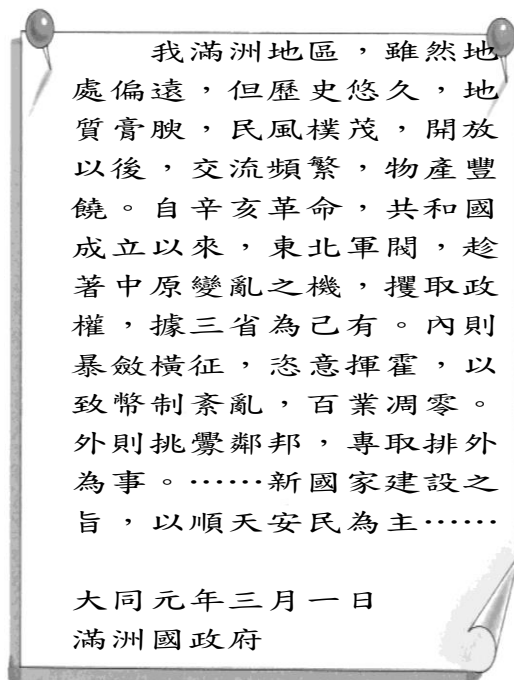 我滿洲地區，雖然地
處偏遠，但歷史悠久，地
質膏腴，民風樸茂，開放
以後，交流頻繁，物產豐
饒。自辛亥革命，共和國
成立以來，東北軍閥，趁
著中原變亂之機，攫取政
權，據三省為己有。內則
暴斂橫征，恣意揮霍，以
致幣制紊亂，百業凋零。
外則挑釁鄰邦，專取排外
為事。……新國家建設之
旨，以順天安民為主……
大同元年三月一日
滿洲國政府